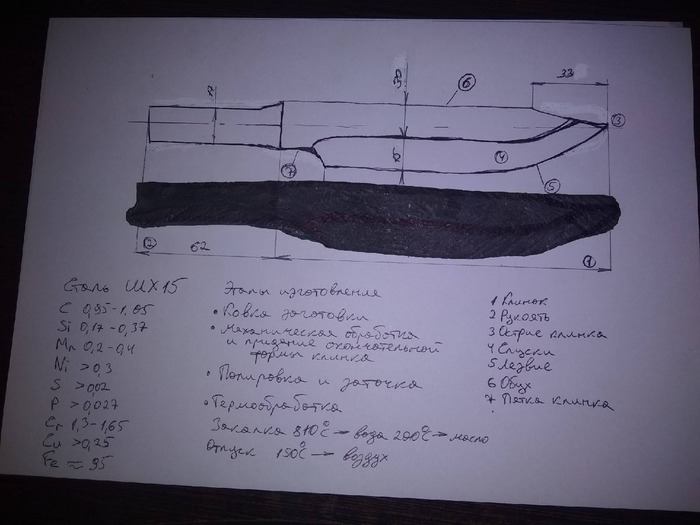 33
6
3
4
7
5
2
62
1
Сталь ШХ15
C 0,95-1,05
Si 0,17-0,37
Mn 0,2-0,4
Ni >0,3
S >0,02
P >0,027
Cr 1,3-1,65
Cu >0,25
Fe ≈ 95
Этапы изготовления
• Ковка заготовки
• Механическая обработка
и придание окончательной
формы клинка
• Полировка и заточка
• Термообработка
Закалка 810°C → вода 200°C → масло
Отпуск 150°C → воздух
1 Клинок
2 Рукоять
3 Острие клинка
4 Спуски
5 Лезвие
6 Обух
7 Пятка клинка